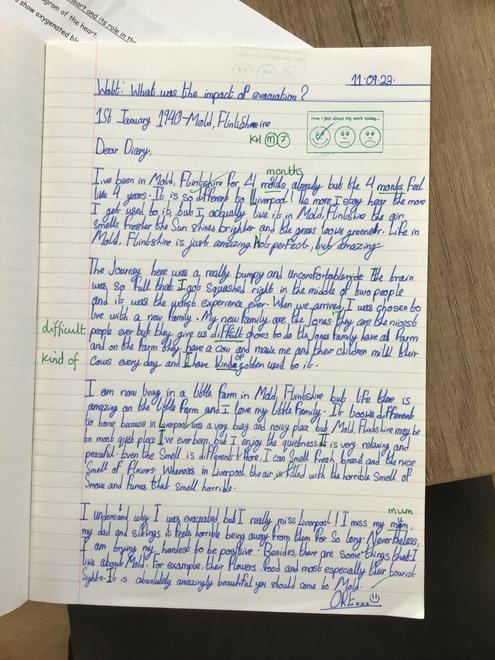 heart and its role in the
agram of the heart.
show oxygenated bl
11.09.23.
Walt: What was the impact of evacuation?
1st January 1940-Mold, Flintshire
KH M 7
How I feel about my work today...
Dear Diary,
months
I've been in Mold, Flintshire for 4 molds, already but the 4 monts feel
like 4 years. It is so different to Liverpool! The more I stay hear the more
I get used to it, but I actually like it in Mold, Flintshire the air
smells fresher the Sun shines brighter and the grass looks greener. Life in
Mold, Flintshire is just amazing Not perfect, but amazing
The Journey here was a really bumpy and uncomfortable ride the train
was so full that I got squashed right in the middle of two people
and it was the worst experience ever. When we arrived I was chosen to
live with a new family. My new family are the Jones' they are the nicest
difficult
people ever but they give us difficult chores to do the Jones family have a farm
and on the farm they have a cow and make me and their children milk their
kind of
cows every day and I have kinda gotten used to it.
I am now living in a little farm in Mold, Flintshire but life there is
amazing on the little farm and I love my little family. It looks different
to home because in Liverpool was a very busy and noisy place but Mold, Flintshire may be
to most quiet place I've ever been, but I enjoy the quietness. It is very relaxing and
peaceful. Even the smell is different there, I can smell fresh bread and the nice
smell of flowers. Whereas in Liverpool, the air is filled with the horrible smell of
smoke and fumes that smell horrible.
mum
I understand why I was evacuated but I really miss Liverpool! I miss my mum,
my dad and siblings it feels horrible being away from them for so long. Nevertheless,
I am trying my hardest to be positive. Besides there are some things that I
like about Mold. For example, their flowers, food and most especially their tourist
sights. It is absolutely amazingly beautiful you should come to Mold.